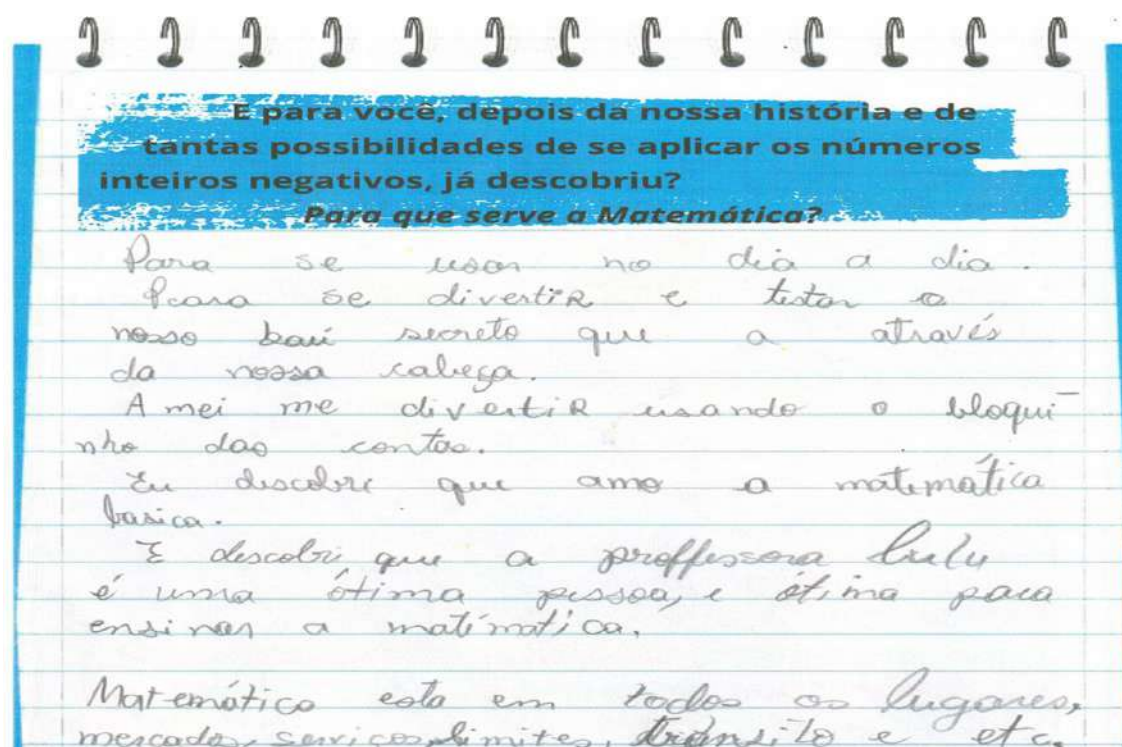 E para você, depois da nossa história e de
tantas possibilidades de se aplicar os números
inteiros negativos, já descobriu?
Para que serve a Matemática?
Para se usar no dia a dia.
Para se divertiR e testar o
nosso baú secreto que a através
da nossa cabeça.
Amei me divertiR usando o bloqui-
nho das contas.
Eu descobri que amo a matemática
basica.
E descobri que a proffessora Lulu
é uma ótima pessoa, e ótima para
ensinar a matímatica.
Matemática esta em todos os lugares,
mercados, serviços, limites, trânsito e etc.